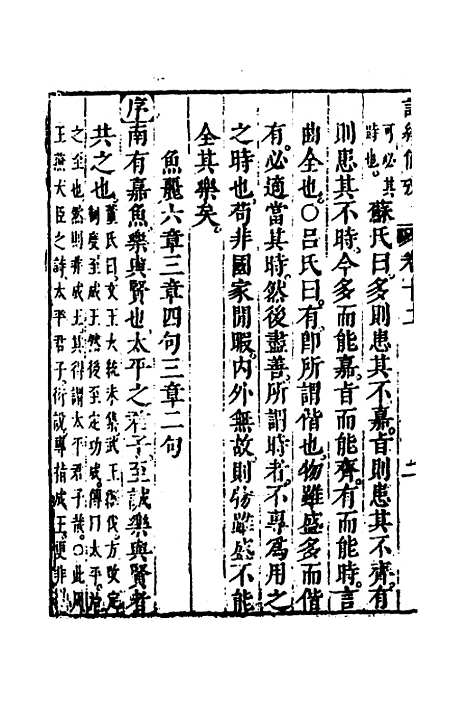 詩經備攷 卷十二
可必其
時也 蘇氏曰多則患其不嘉旨則患其不齊有
則患其不時今多而能嘉旨而能齊有而能時言
曲全也○呂氏曰有即所謂偕也物雖盛多而偕
有必適當其時然後盡善所謂時者不專爲用之
之時也苟非國家閒暇內外無故則物雖盛不能
全其樂矣
魚麗六章三章四句三章二句
序南有嘉魚樂與賢也太平之君子至誠樂與賢者
共之也
董氏曰文王大統未集武王
伐方改定
制度至成王然後至定功成傳曰太平
之至也然則非成王其得謂太平君子哉○此
王燕大臣之詩太平君子衍說專指成王便非